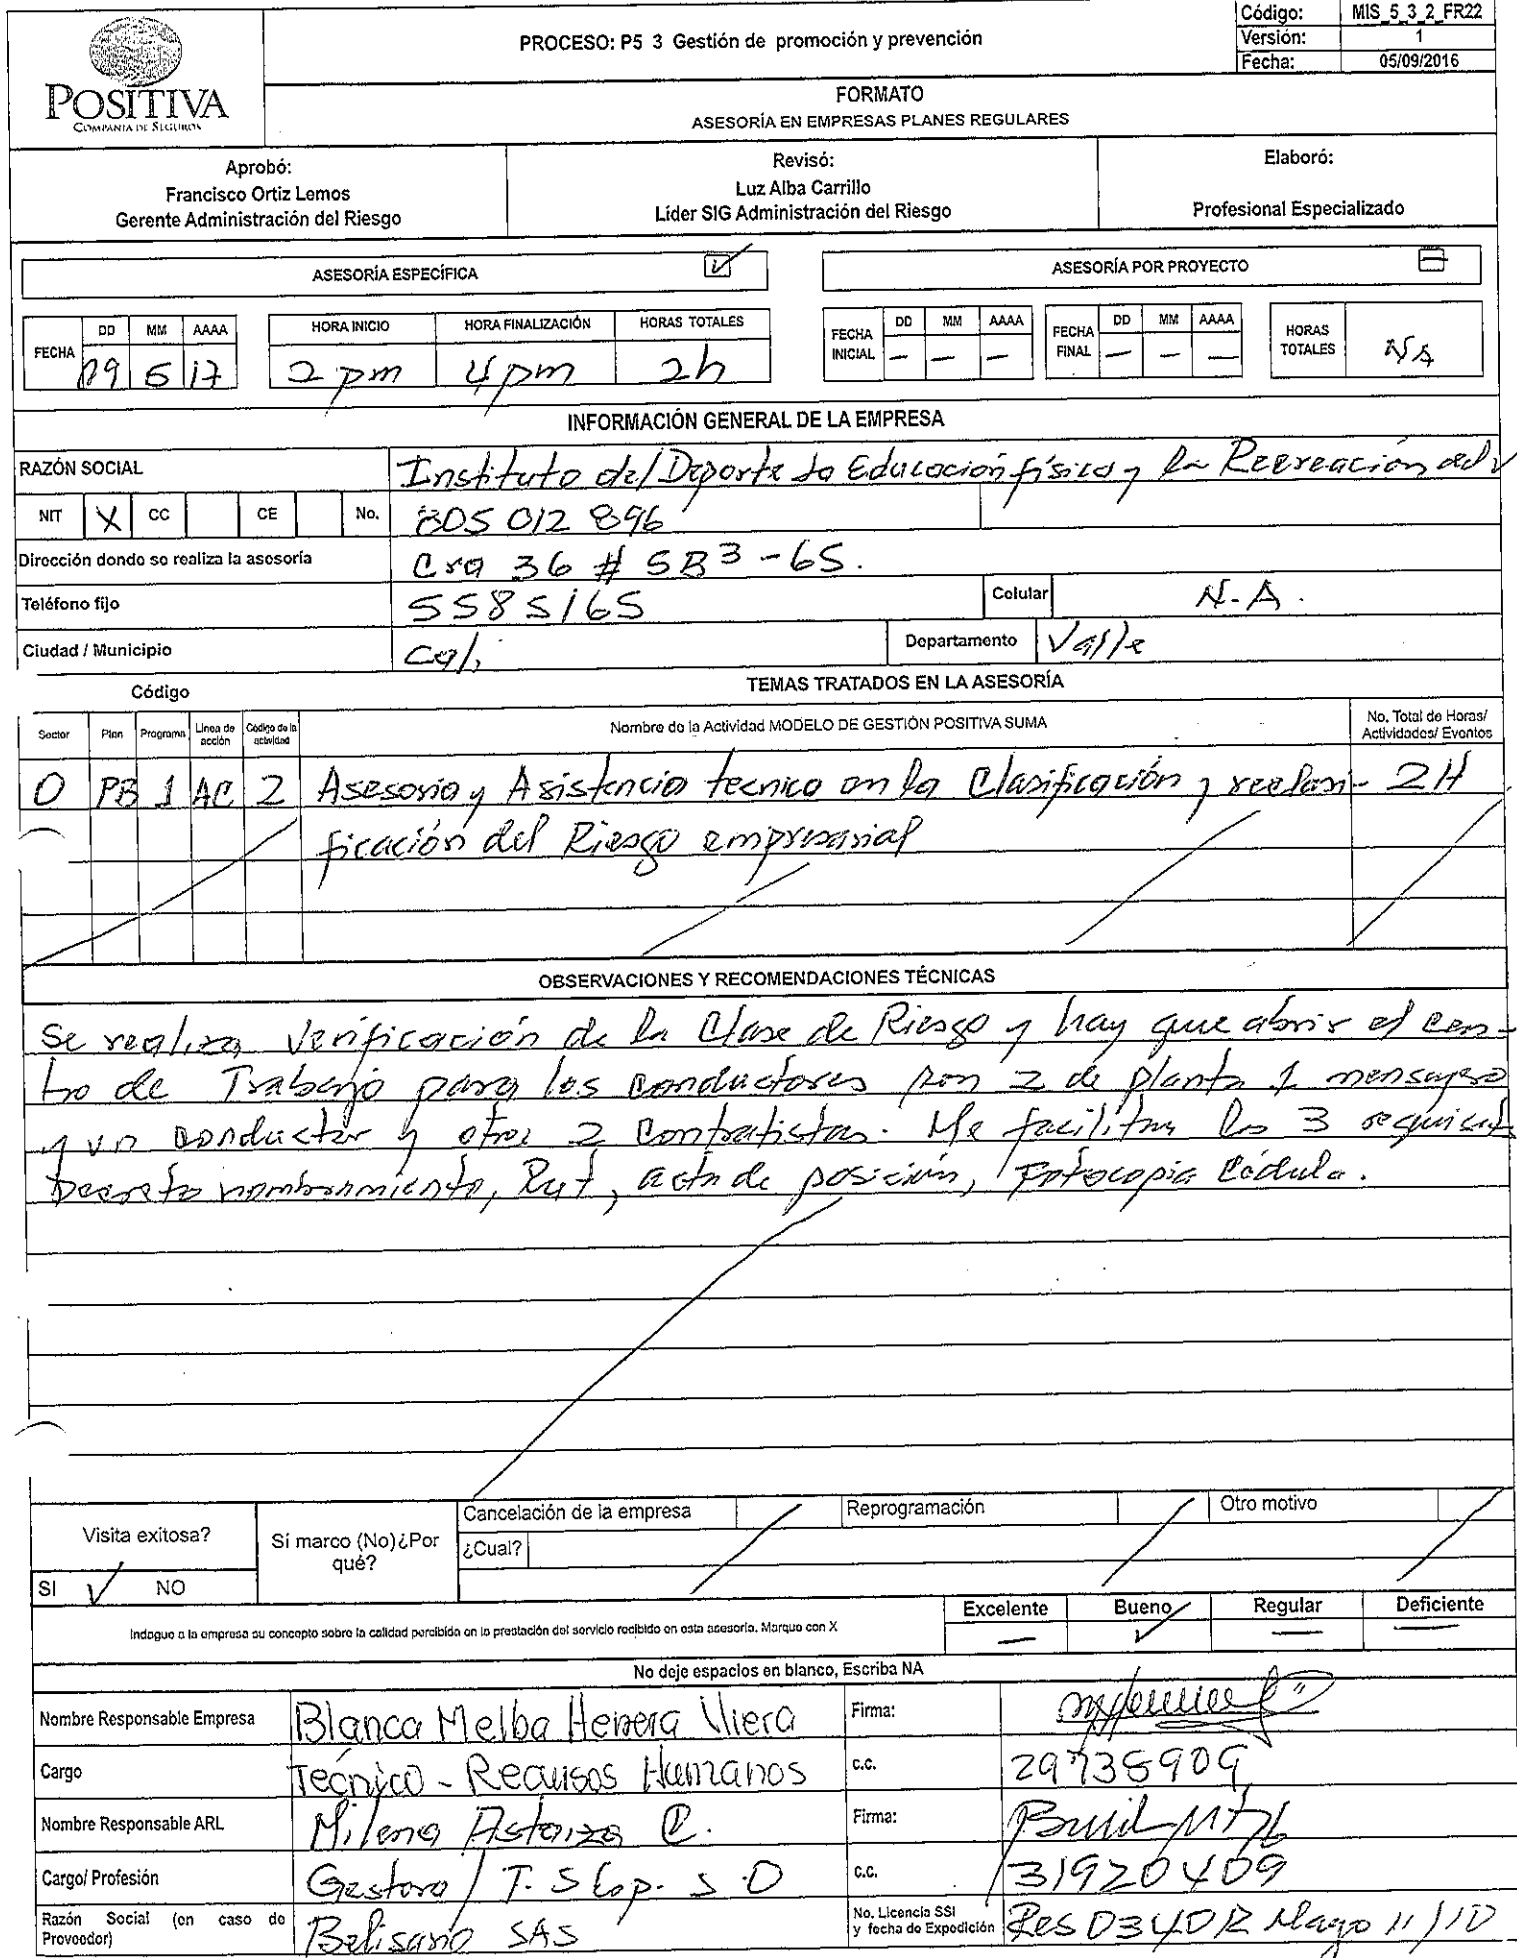 POSITIVA
COMPAÑIA DE SEGUROS
PROCESO: P5 3 Gestión de promoción y prevención
Código: MIS_5_3_2_FR22
Versión: 1
Fecha: 05/09/2016
FORMATO
ASESORÍA EN EMPRESAS PLANES REGULARES
Aprobó:
Francisco Ortiz Lemos
Gerente Administración del Riesgo
Revisó:
Luz Alba Carrillo
Líder SIG Administración del Riesgo
Elaboró:
Profesional Especializado
ASESORÍA ESPECÍFICA
ASESORÍA POR PROYECTO
FECHA DD MM AAAA
HORA INICIO HORA FINALIZACIÓN HORAS TOTALES
2 pm 4 pm 2h
FECHA INICIAL DD MM AAAA
— — —
FECHA FINAL DD MM AAAA
— — —
HORAS TOTALES NA
INFORMACIÓN GENERAL DE LA EMPRESA
RAZÓN SOCIAL Instituto del Deporte la Educación física y la Recreación del V
NIT X CC CE No. 805 012 896
Dirección donde se realiza la asesoría Cra 36 # 5B3 - 65.
Teléfono fijo 5585165 Celular N.A.
Ciudad / Municipio Cali Departamento Valle
Código TEMAS TRATADOS EN LA ASESORÍA
Sector Plan Programa Línea de acción Código de la actividad Nombre de la Actividad MODELO DE GESTIÓN POSITIVA SUMA No. Total de Horas/ Actividades/ Eventos
0 PB 1 AC 2 Asesoria y Asistencia tecnica en la Clasificación y reclasi- 2H
ficación del Riesgo empresarial
OBSERVACIONES Y RECOMENDACIONES TÉCNICAS
Se realiza verificación de la Clase de Riesgo y hay que abrir el cen-
tro de Trabajo para los conductores son 2 de planta 1 mensajero
y un conductor y otros 2 Contratistas. Me facilitan los 3
Decreto nombramiento, Rut, acta de posición, Fotocopia Cédula.
Visita exitosa?
SI ✓ NO
Sí marco (No)¿Por qué?
Cancelación de la empresa Reprogramación Otro motivo
¿Cual?
Indague a la empresa su concepto sobre la calidad percibida en la prestación del servicio recibido en esta asesoría. Marque con X
Excelente Bueno Regular Deficiente
— ✓ — —
No deje espacios en blanco, Escriba NA
Nombre Responsable Empresa Blanca Melba Herrera Viera Firma:
Cargo Técnico - Recursos Humanos c.c.
Nombre Responsable ARL Milena Astaiza C. Firma:
Cargo/ Profesión Gestora / c.c. 31920409
Razón Social (en caso de Proveedor) Belisario SAS No. Licencia SSI y fecha de Expedición Res